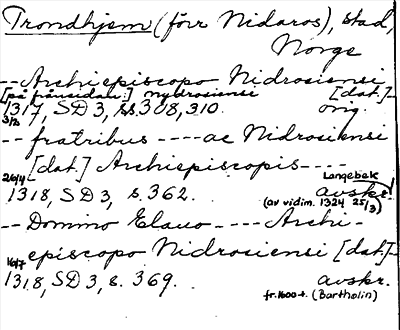 Trondhjem (förr Nidaros), stad,
Norge
-- Archiepiscopo Nidrosiensi
[på frånsidan:] nydrosiensi [dat.]-
1317, SD 3, s. 308, 310. orig.
3/2
-- fratribus ---- ac Nidrosiensi
[dat.] Archiepiscopis ----
26/4 Langebek
1318, SD 3, s. 362. avskr.
(av vidim. 1324 25/3)
-- Domino Elavo ---- Archi-
episcopo Nidrosiensi [dat.]-
16/7
1318, SD 3, s. 369. avskr.
fr. 1600-t. (Bartholin)